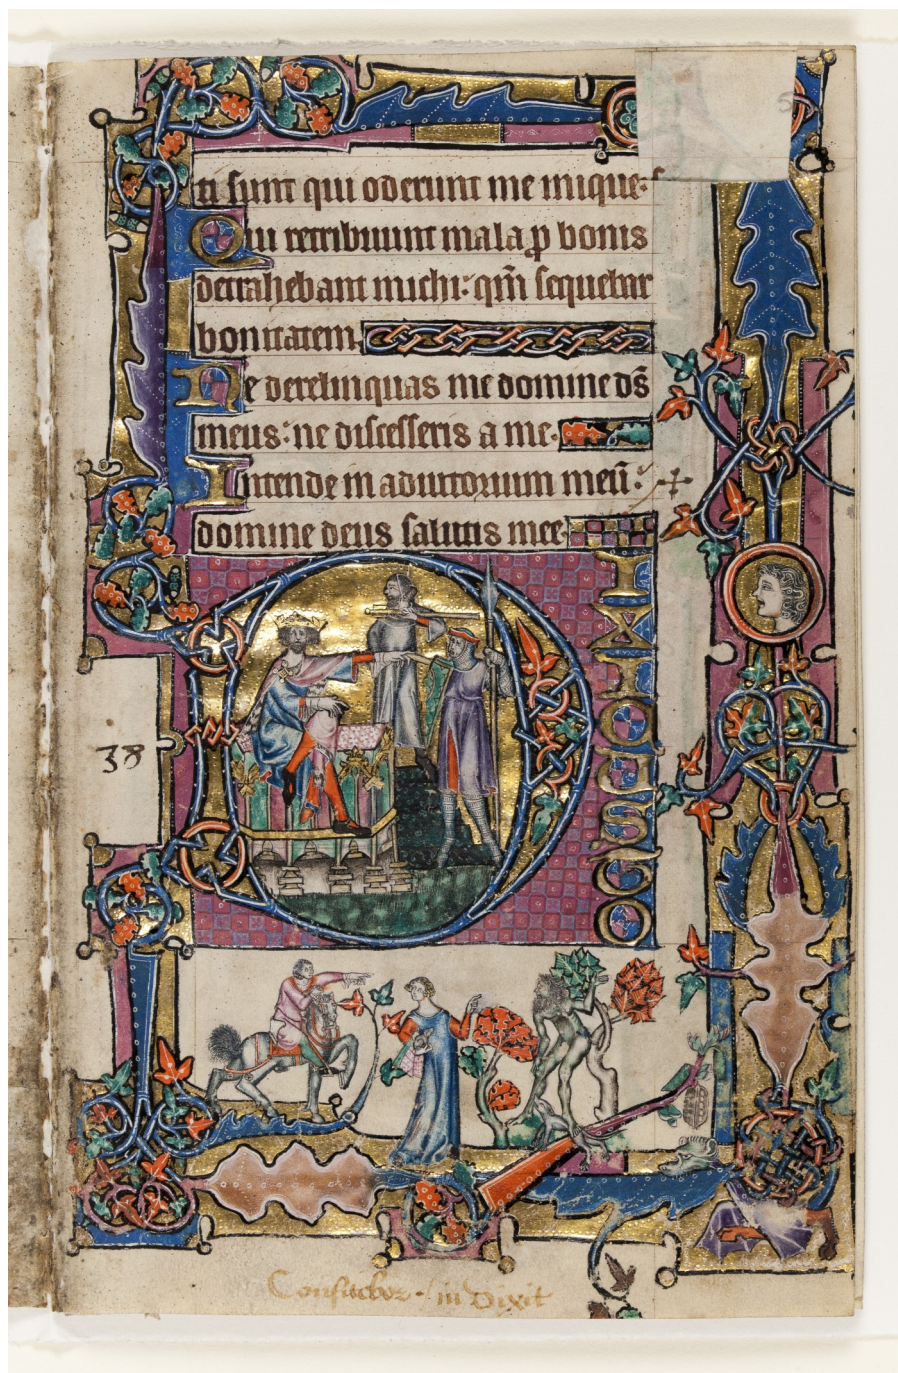 ti sunt qui oderunt me inique:
Qui retribuunt mala ꝑ bonis
detrahebant michi: qm̄ sequebar
bonitatem
Ne derelinquas me domine ds̄
meus: ne discesseris a me.
Intende in adiutorium meū:
domine deus salutis mee
DIXI CUSTO
38
Dixit